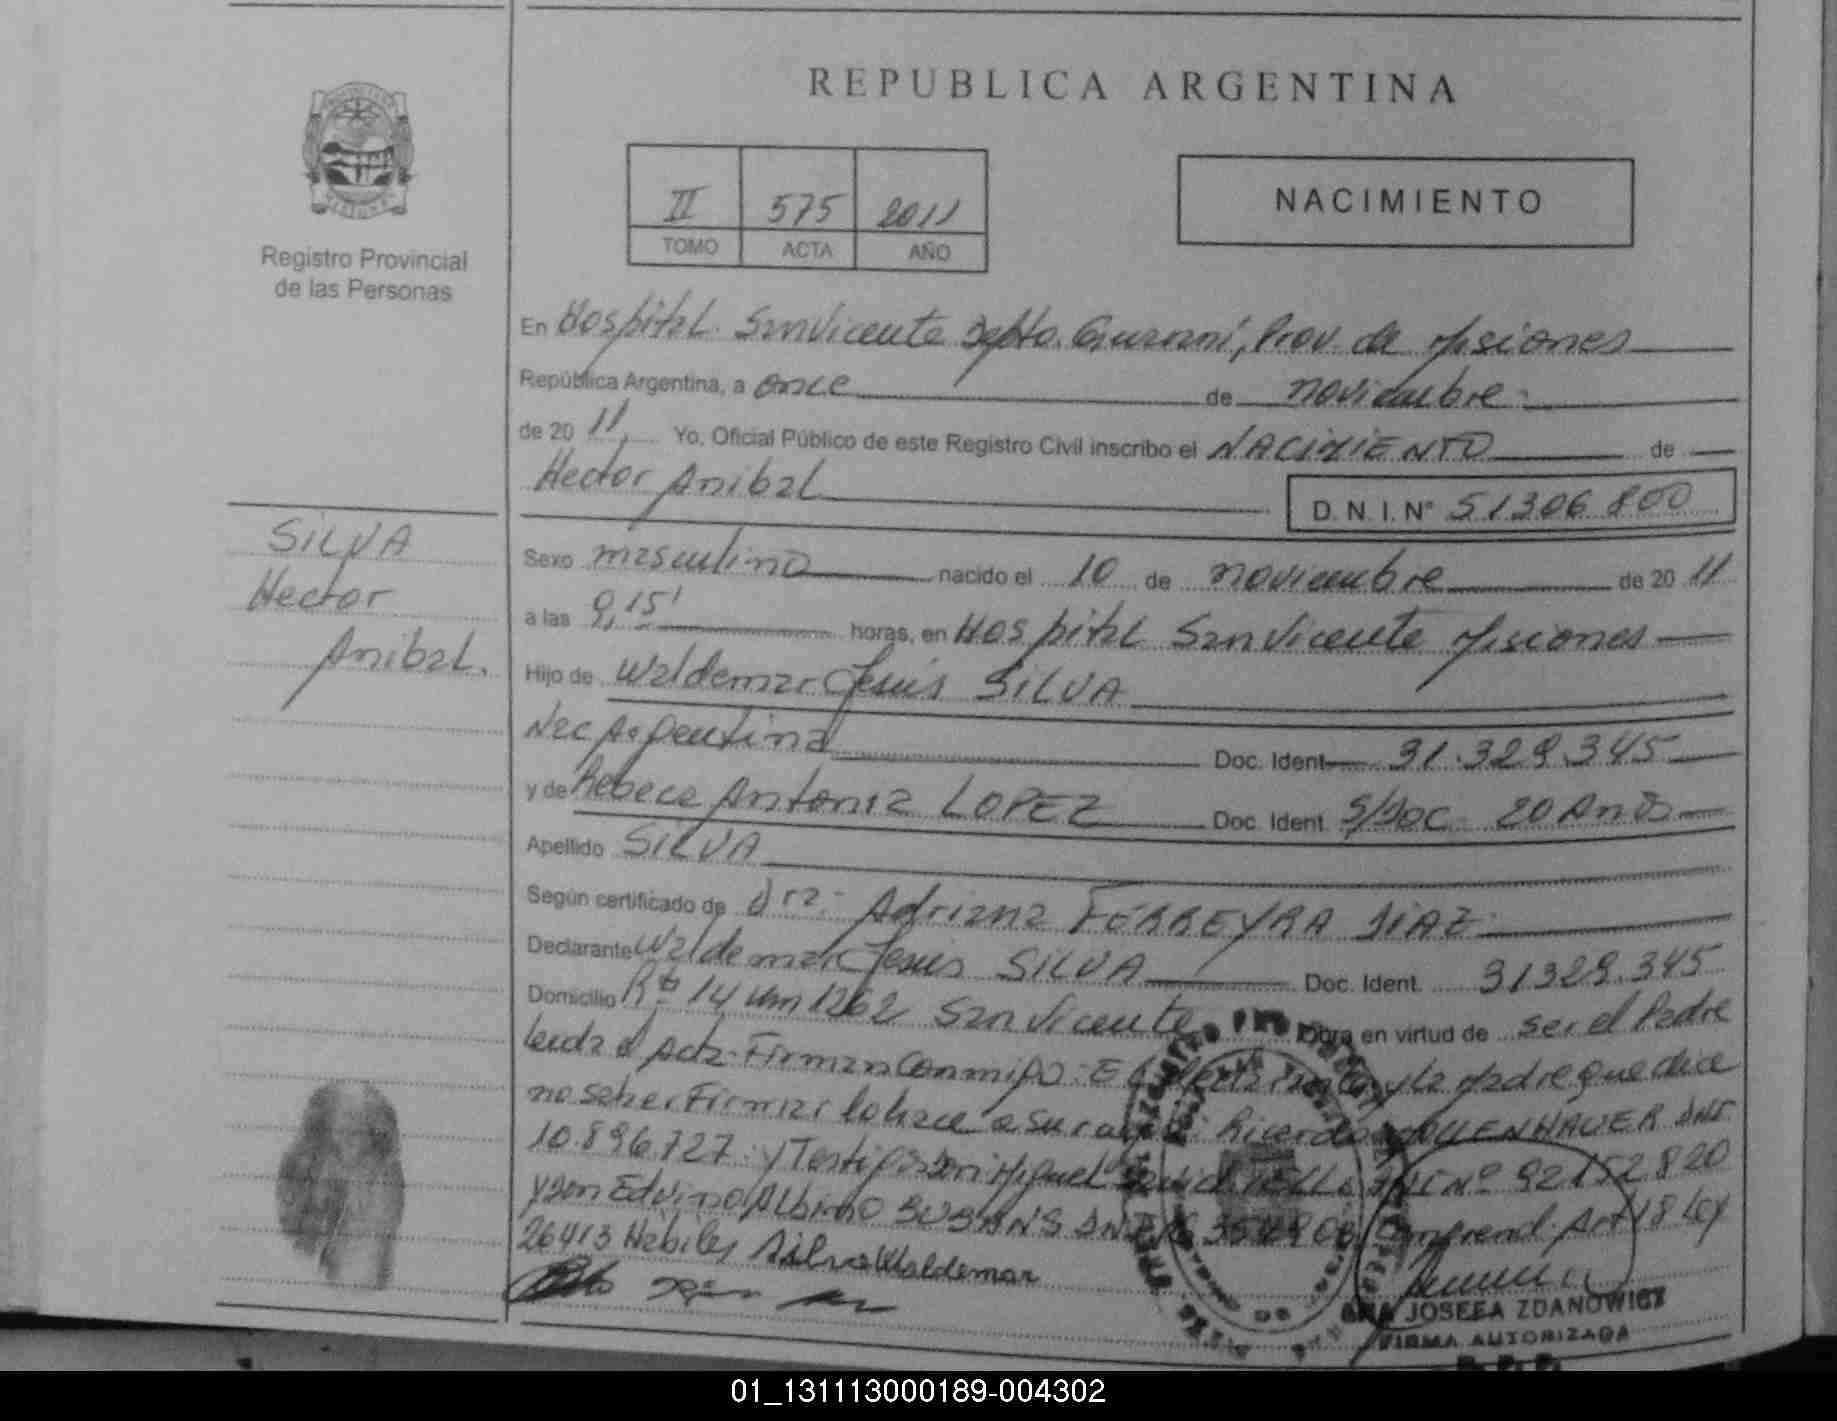 REPUBLICA ARGENTINA
II 575 2011
TOMO ACTA AÑO
NACIMIENTO
Registro Provincial
de las Personas
SILVA
Hector
Anibal.
En Hospital San Vicente Depto. Guaraní, Prov. de Misiones
República Argentina, a once de noviembre
de 20 11, Yo, Oficial Público de este Registro Civil inscribo el NACIMIENTO de
Hector Anibal
D. N. I. N° 51306 800
Sexo masculino nacido el 10 de noviembre de 20 11
a las 9,15' horas, en Hospital San Vicente Misiones
Hijo de Waldemar Jesús SILVA
Nac Argentina Doc. Ident 31.329.345
y de Rebeca Antonia LOPEZ Doc. Ident. S/Doc 20 Años
Apellido SILVA
Según certificado de Dra. Adriana FERREYRA DIAZ
Declarante Waldemar Jesús SILVA Doc. Ident. 31329.345
Domicilio Rta 14 Km 1262 San Vicente Obra en virtud de ser el Padre
leida el Acta Firman Conmigo: El declarante y la Madre que dice
no saber Firmar lo hace a su Ricardo DNI
10.896.727 y Testigos Don Miguel DNI Nº 92152820
y Don Edvino Albino DNI Comprend. Art 18 Ley
26413 Hábiles Silva Waldemar
ANA JOSEFA ZDANOWICZ
FIRMA AUTORIZADA
01_131113000189-004302